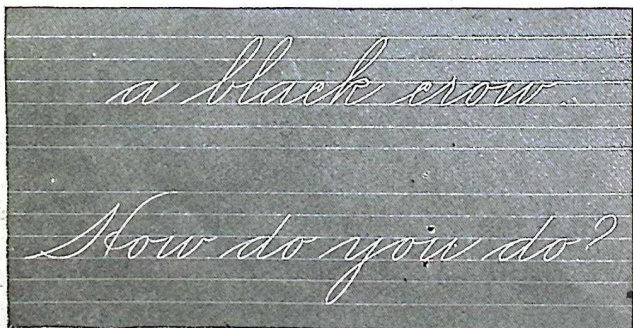 a black crow
How do you do?